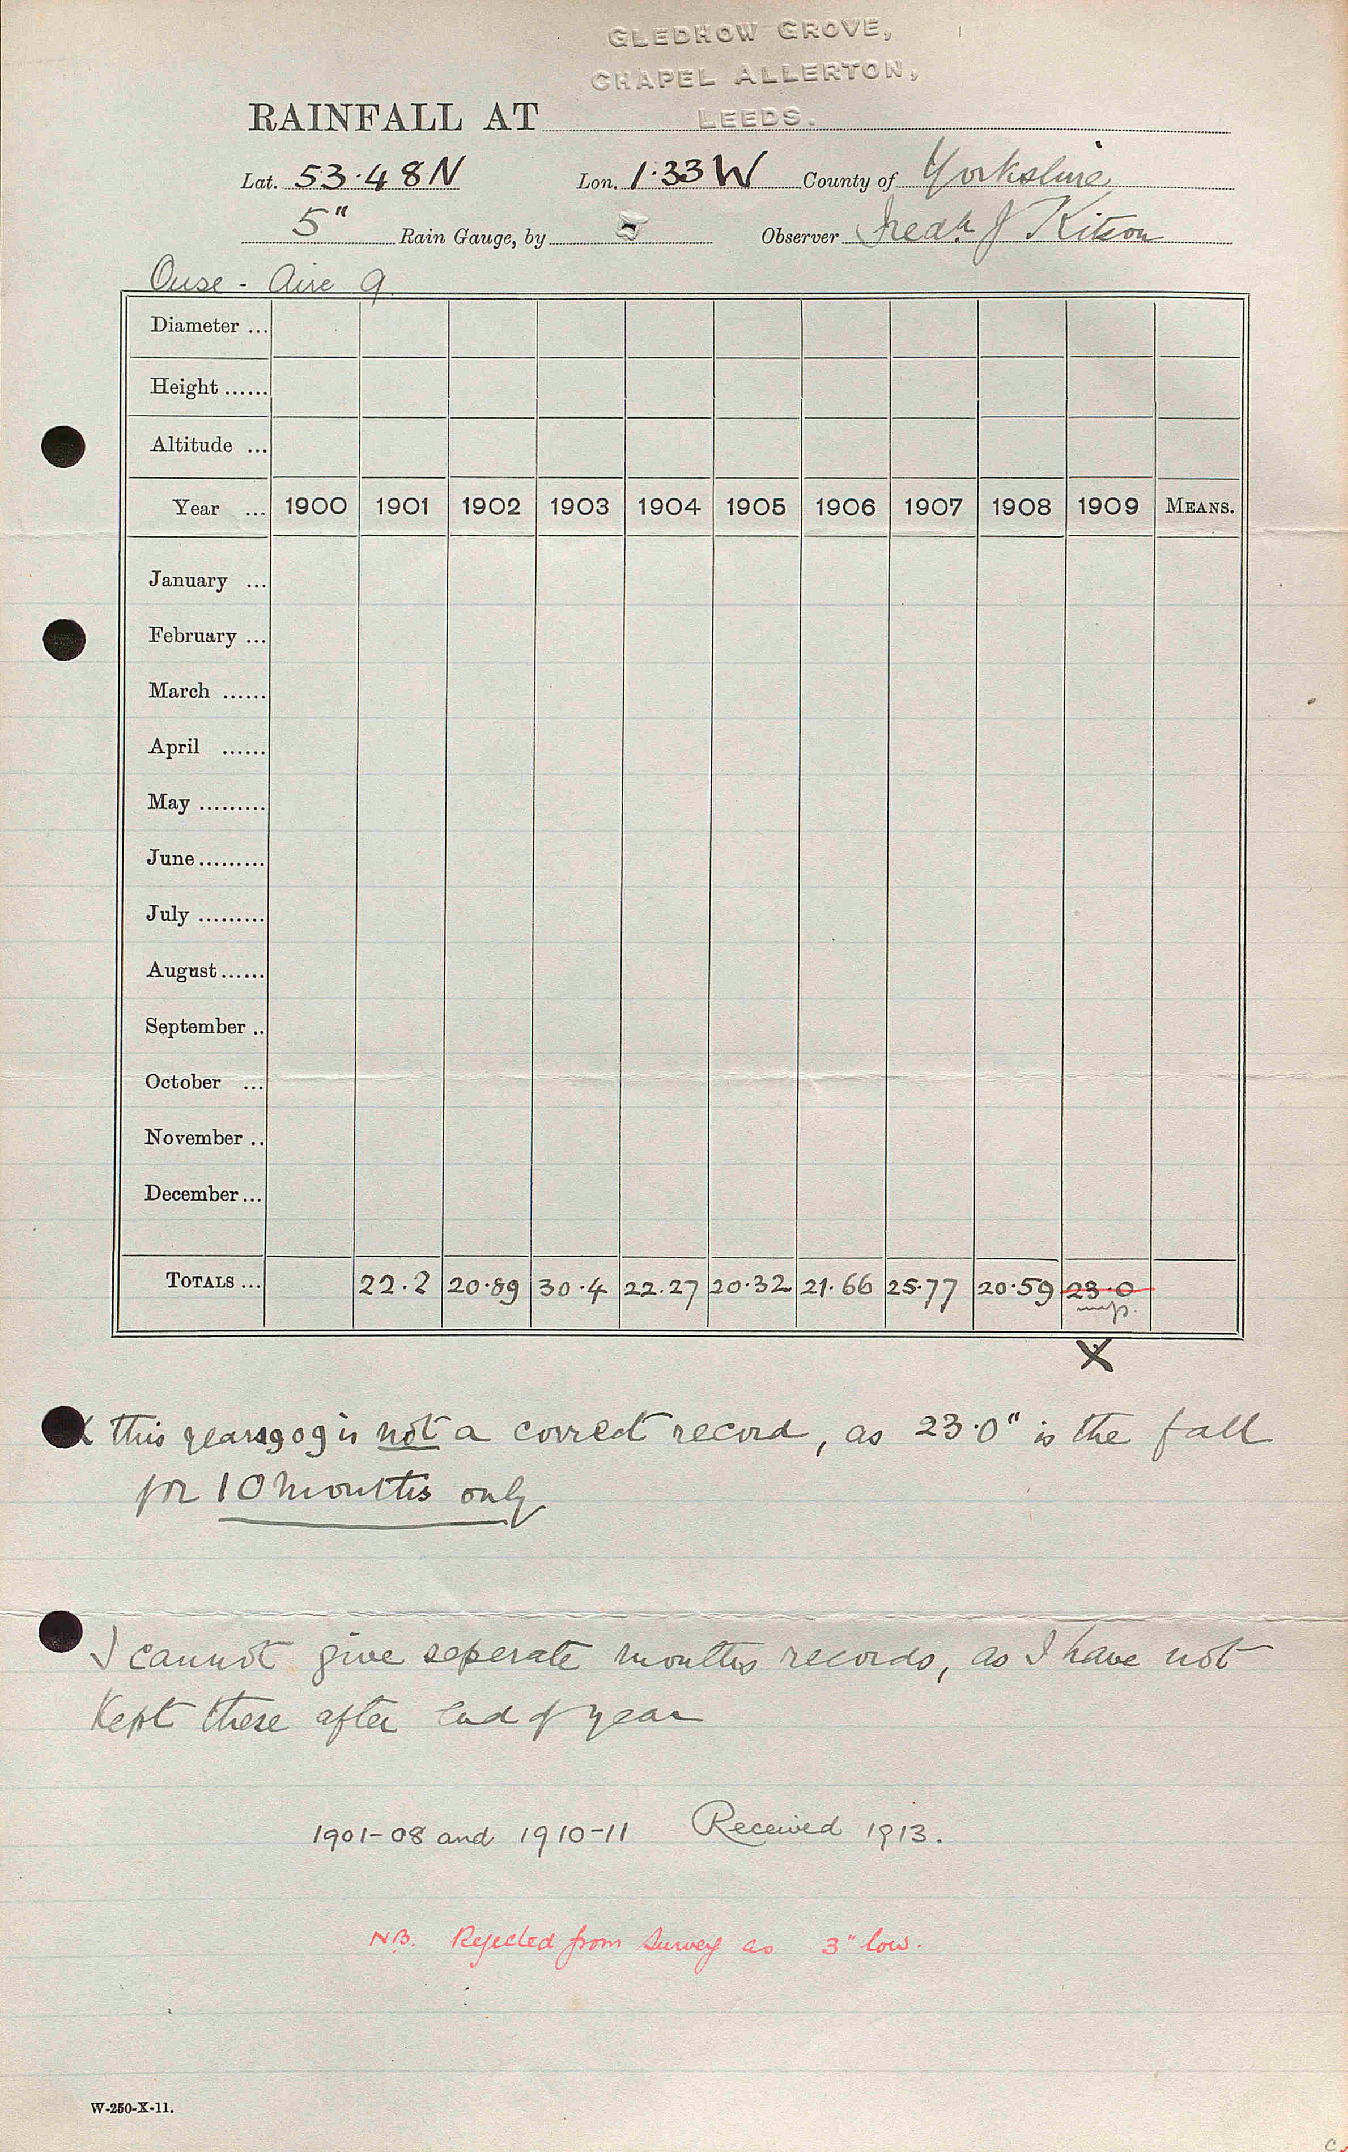 GLEDHOW GROVE,
CHAPEL ALLERTON,
LEEDS.
RAINFALL AT
Lat. 53.48N Lon. 1.33W County of Yorkshire
5" Rain Gauge, by Observer Fredk J Kitson
Ouse - Aire 9
Diameter ...
Height ......
Altitude ...
Year ... 1900 1901 1902 1903 1904 1905 1906 1907 1908 1909 MEANS.
January ...
February ...
March ......
April ......
May .........
June.........
July .........
August......
September ..
October ...
November ..
December...
TOTALS ... 22.2 20.89 30.4 22.27 20.32 21.66 25.77 20.59 23.0
X
X this year 1909 is not a correct record, as 23.0" is the fall
for 10 months only
I cannot give seperate months records, as I have not
Kept these after end of year
1901-08 and 1910-11 Received 1913.
NB. Rejected from Survey as 3" low.
W-250-X-11.